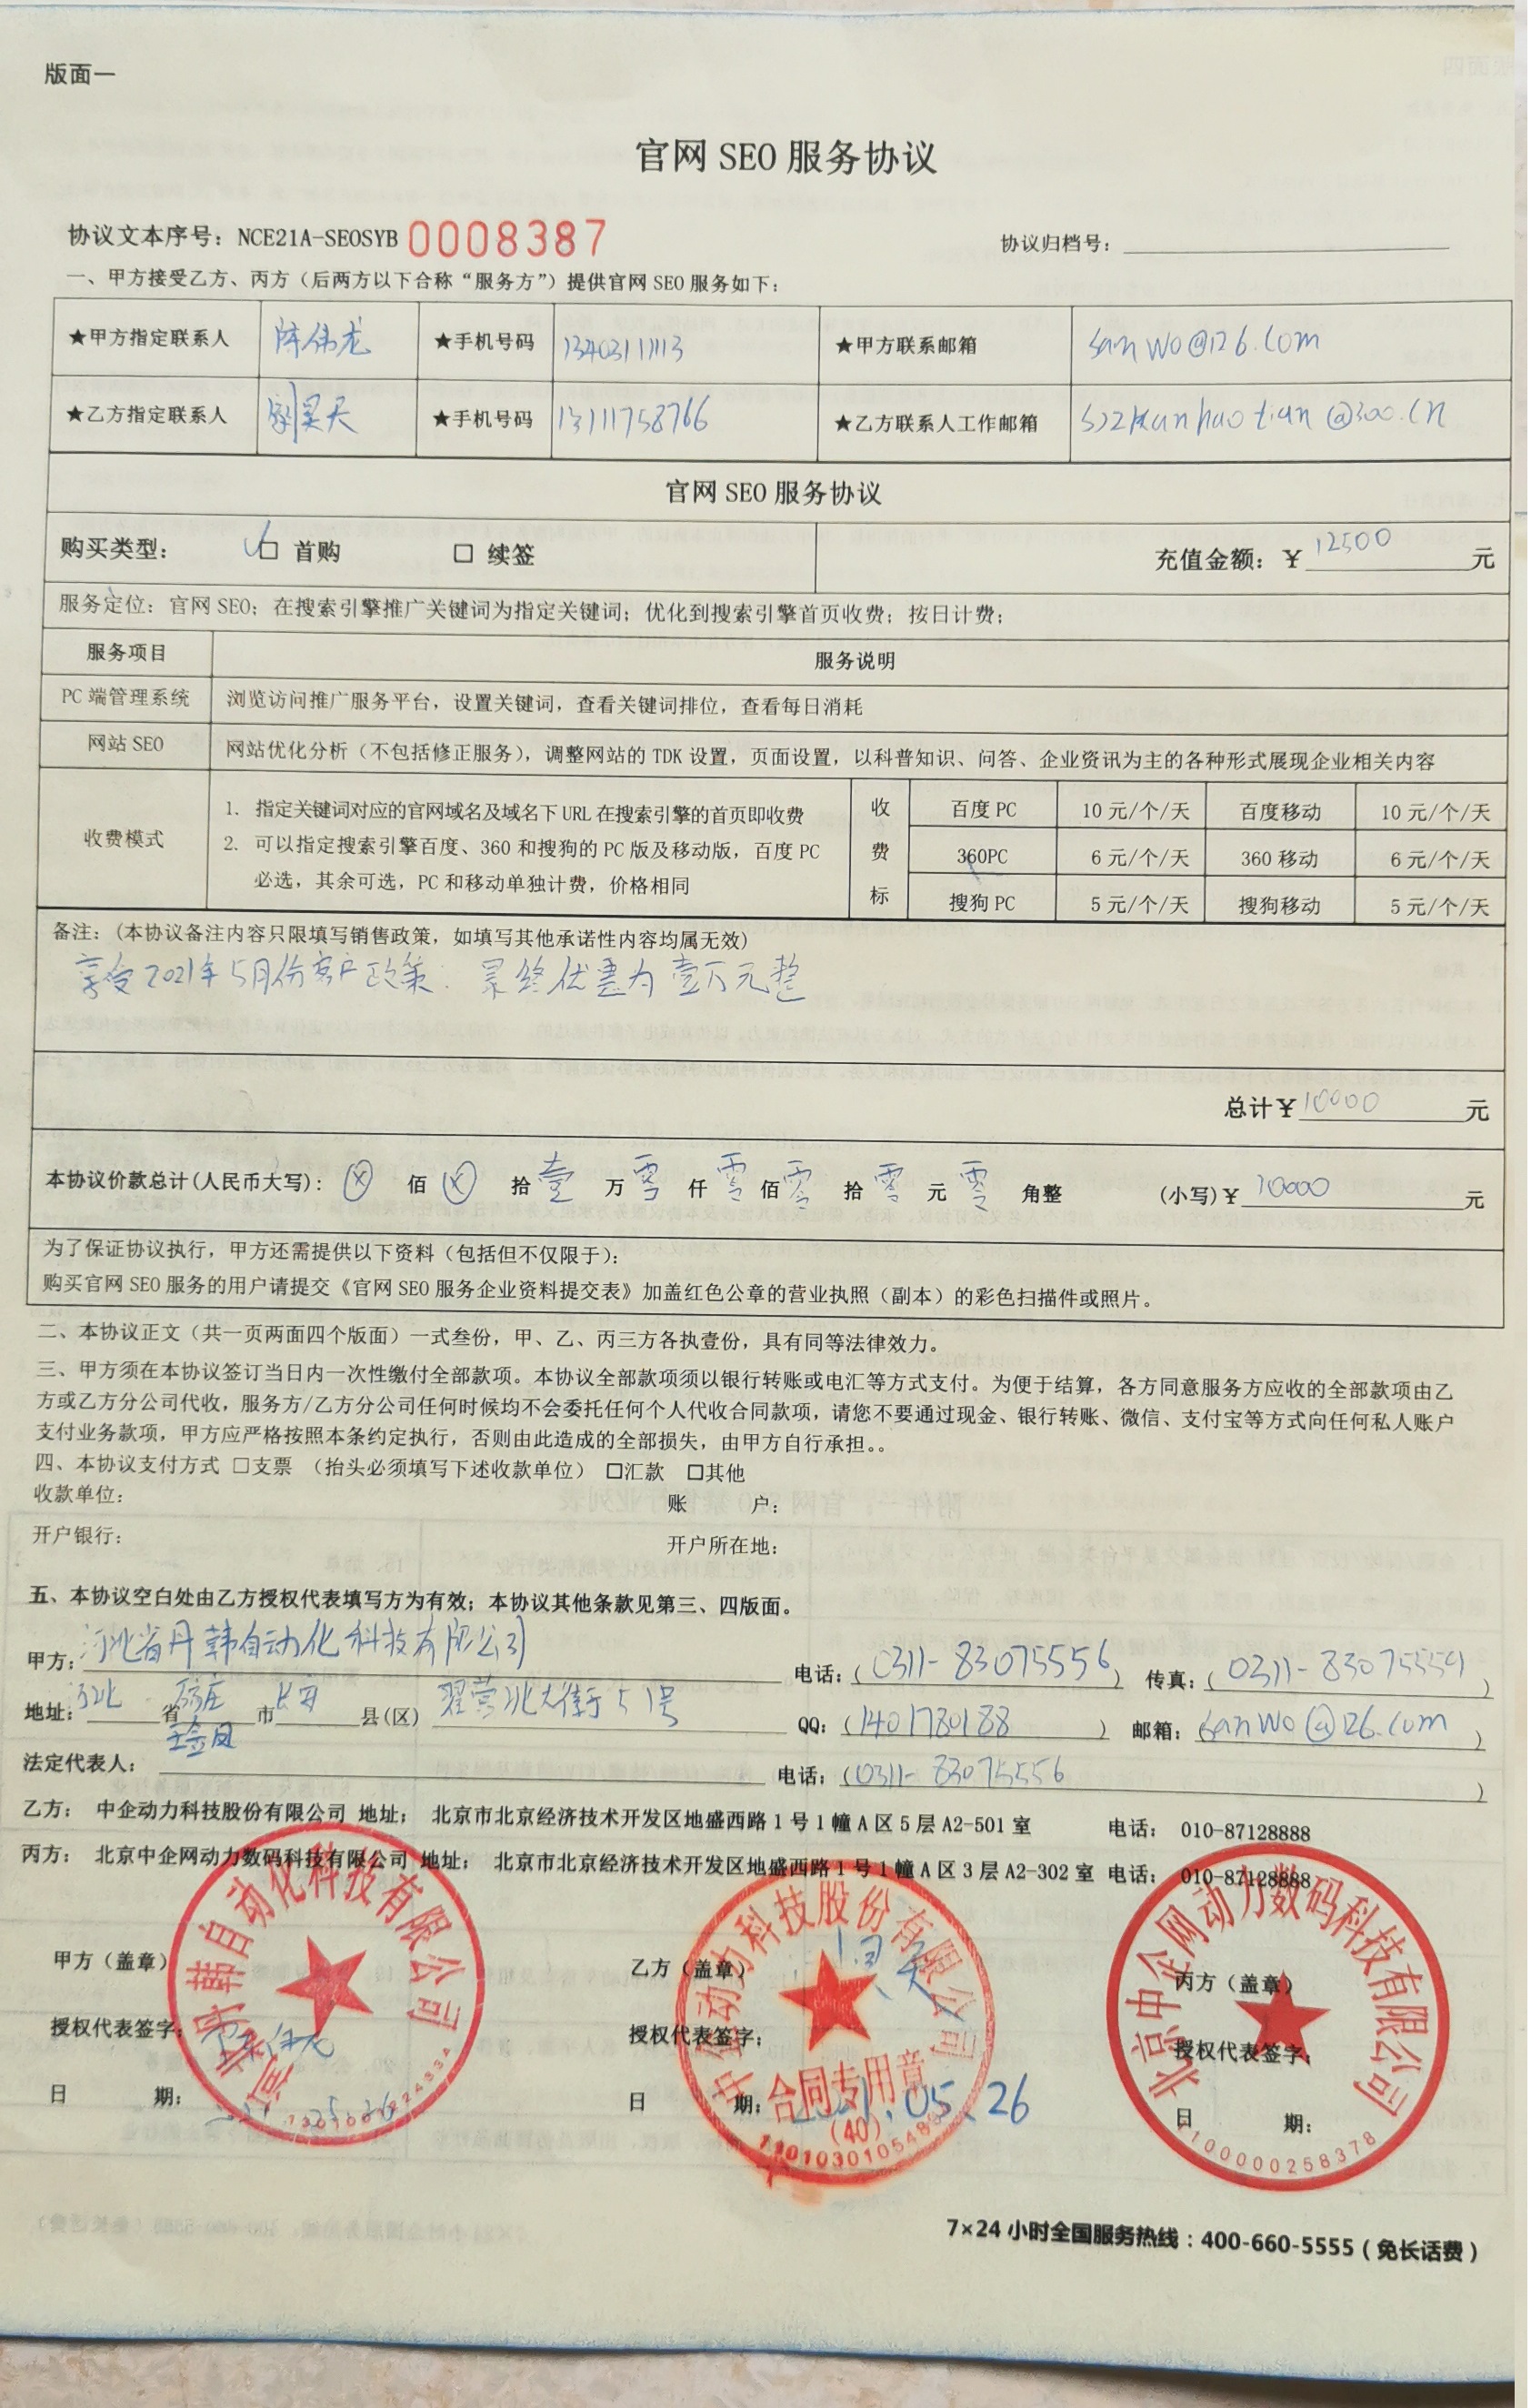 版面一
官网 SEO 服务协议
协议文本序号：NCE21A-SEOSYB 0008387 协议归档号：
一、甲方接受乙方、丙方（后两方以下合称“服务方”）提供官网 SEO 服务如下：
★甲方指定联系人 陈伟龙 ★手机号码 13403111113 ★甲方联系邮箱 sanwo@126.com
★乙方指定联系人 昊天 ★手机号码 13111758766 ★乙方联系人工作邮箱 @300.cn
官网 SEO 服务协议
购买类型： ✓□ 首购 □ 续签 充值金额：￥12500元
服务定位：官网 SEO；在搜索引擎推广关键词为指定关键词；优化到搜索引擎首页收费；按日计费；
服务项目 服务说明
PC 端管理系统 浏览访问推广服务平台，设置关键词，查看关键词排位，查看每日消耗
网站 SEO 网站优化分析（不包括修正服务），调整网站的 TDK 设置，页面设置，以科普知识、问答、企业资讯为主的各种形式展现企业相关内容
收费模式
1. 指定关键词对应的官网域名及域名下 URL 在搜索引擎的首页即收费
2. 可以指定搜索引擎百度、360 和搜狗的 PC 版及移动版，百度 PC
必选，其余可选，PC 和移动单独计费，价格相同
收费标
百度 PC 10 元/个/天 百度移动 10 元/个/天
360PC 6 元/个/天 360 移动 6 元/个/天
搜狗 PC 5 元/个/天 搜狗移动 5 元/个/天
备注：（本协议备注内容只限填写销售政策，如填写其他承诺性内容均属无效）
享受2021年5月份客户政策：最终优惠为壹万元整
总计￥10000元
本协议价款总计(人民币大写)：ⓧ 佰 ⓧ 拾 壹 万 零 仟 零 佰 零 拾 零 元 零 角整 （小写）￥10000元
为了保证协议执行，甲方还需提供以下资料（包括但不仅限于）：
购买官网 SEO 服务的用户请提交《官网 SEO 服务企业资料提交表》加盖红色公章的营业执照（副本）的彩色扫描件或照片。
二、本协议正文（共一页两面四个版面）一式叁份，甲、乙、丙三方各执壹份，具有同等法律效力。
三、甲方须在本协议签订当日内一次性缴付全部款项。本协议全部款项须以银行转账或电汇等方式支付。为便于结算，各方同意服务方应收的全部款项由乙
方或乙方分公司代收，服务方/乙方分公司任何时候均不会委托任何个人代收合同款项，请您不要通过现金、银行转账、微信、支付宝等方式向任何私人账户
支付业务款项，甲方应严格按照本条约定执行，否则由此造成的全部损失，由甲方自行承担。。
四、本协议支付方式 □支票 （抬头必须填写下述收款单位） □汇款 □其他
收款单位： 账 户：
开户银行： 开户所在地：
五、本协议空白处由乙方授权代表填写方为有效；本协议其他条款见第三、四版面。
甲方：河北省丹韩自动化科技有限公司 电话：（0311-83075556） 传真：（0311-83075559）
地址：河北省 石家庄市 长安县(区) 翟营北大街51号 QQ：（1401780188） 邮箱：sanwo@126.com）
法定代表人：王金凤 电话：（0311-83075556）
乙方： 中企动力科技股份有限公司 地址； 北京市北京经济技术开发区地盛西路 1 号 1 幢 A 区 5 层 A2-501 室 电话： 010-87128888
丙方： 北京中企网动力数码科技有限公司 地址； 北京市北京经济技术开发区地盛西路 1 号 1 幢 A 区 3 层 A2-302 室 电话： 010-87128888
甲方（盖章） 乙方（盖章） 丙方（盖章）
授权代表签字： 陈伟龙 授权代表签字； 昊天 授权代表签字；
日 期： 日 期：2021.05.26 日 期：
河北省丹韩自动化科技有限公司
中企动力科技股份有限公司
合同专用章
(40)
北京中企网动力数码科技有限公司
1100000258378
7×24 小时全国服务热线：400-660-5555（免长话费）